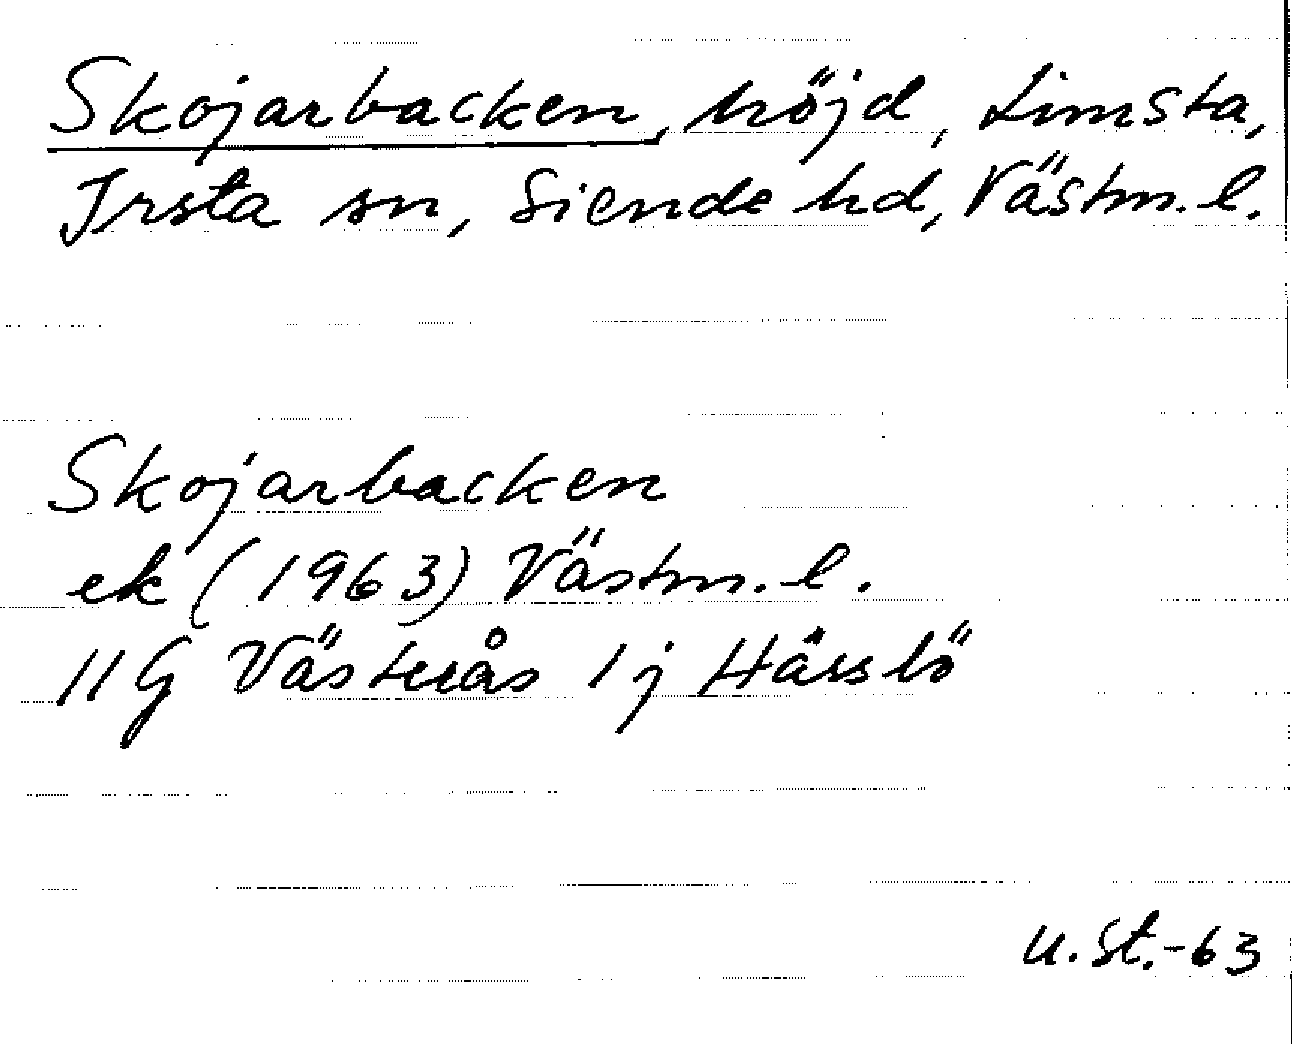 Skojarbacken, höjd, Limsta,
Irsta sn, Siende hd, Västm. l.
Skojarbacken
ek (1963) Västm. l.
11 G Västerås 1 j Härslö
U. St. -63